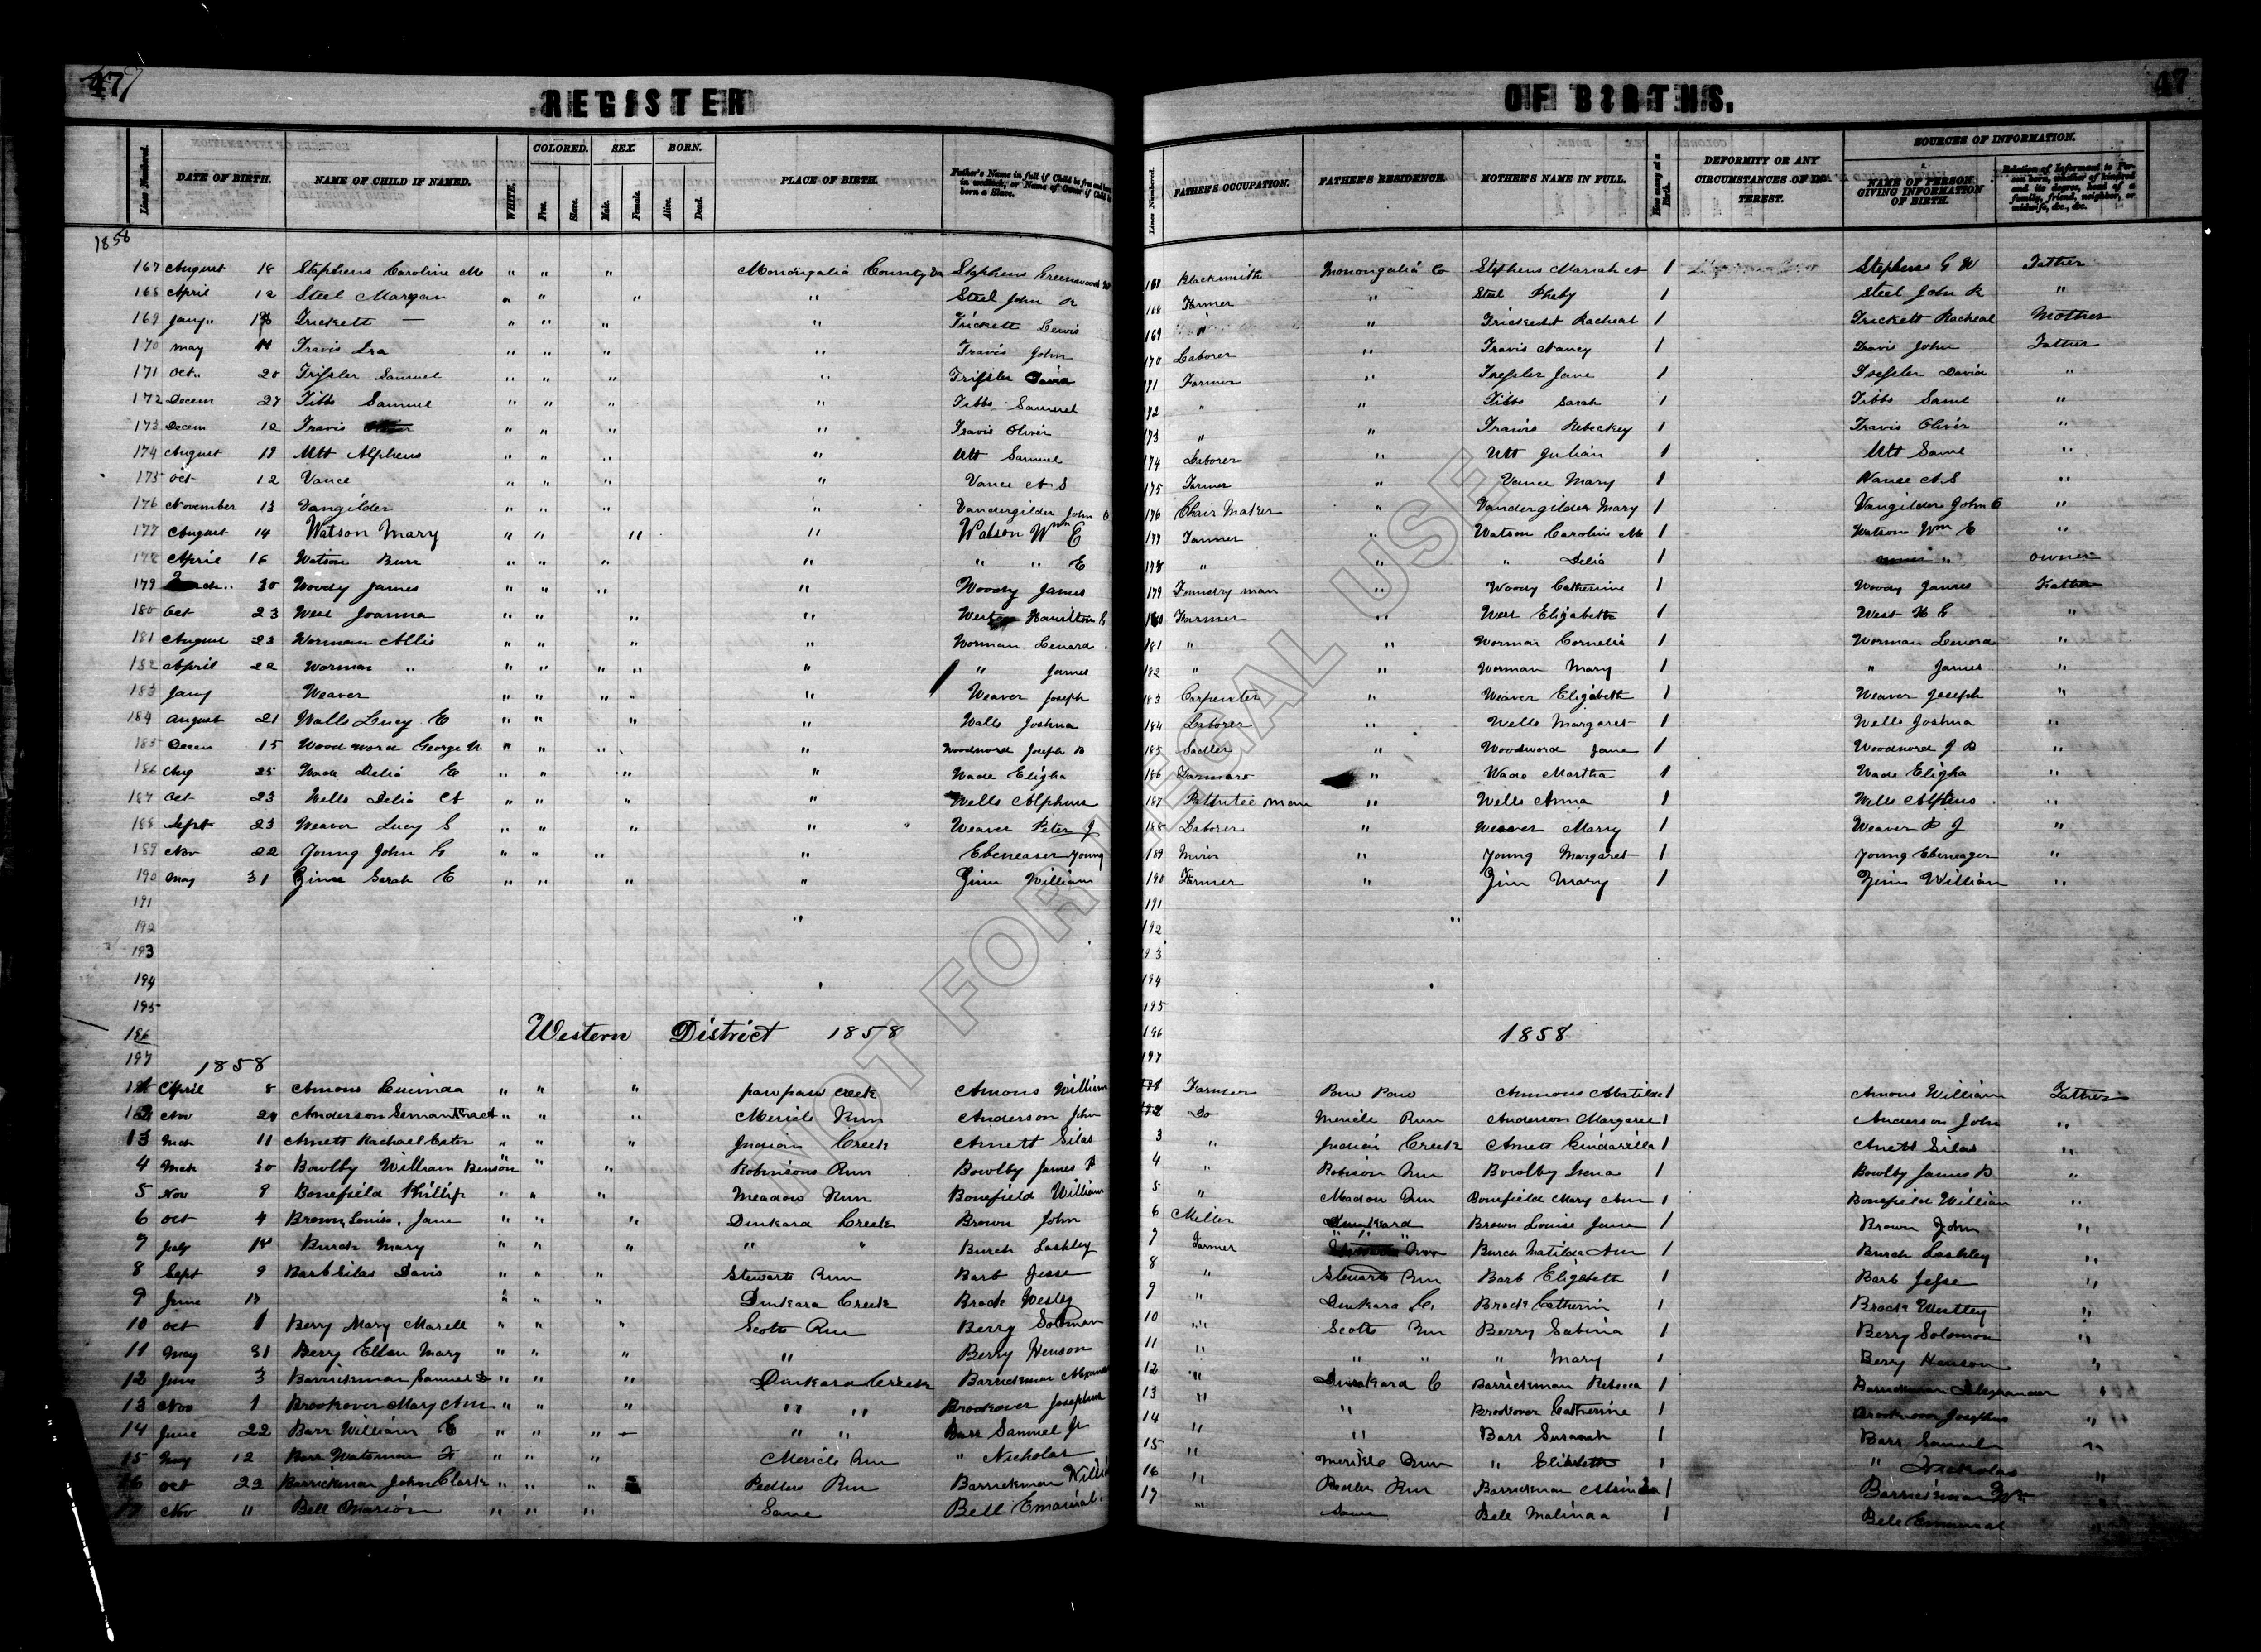 47
REGISTER
Lines Numbered. DATE OF BIRTH. NAME OF CHILD IF NAMED. WHITE. COLORED. Free. Slave. SEX. Male. Female. BORN. Alive. Dead. PLACE OF BIRTH. Father's Name in full if Child be free and born in wedlock, or Name of Owner if Child be born a Slave.
1858
167 August 18 Stephens Caroline M " " " Monongalia County Va Stephens Greenwood W
168 April 12 Steel Margan " " " " Steel John R
169 Jany " Trickett — " " " " Trickett Lewis
170 May Travis Ira " " " " Travis John
171 Oct " 20 Trissler Samuel " " " " Trissler David
172 Decem 27 Tibbs Samuel " " " " Tibbs Samuel
173 Decem 12 Travis " " " " Travis Oliver
174 August 19 Utt Alpheus " " " " Utt Samuel
175 Oct 12 Vance " " " " Vance A S
176 November 13 Vangilder " " " " Vandergilder John
177 August 14 Watson Mary " " " " Watson Wm E
178 April 16 Watson Burr " " " " " " E
179 30 Woody James " " " " Woody James
180 Oct 23 West Joanna " " " " West Hamilton G
181 August 23 Worman Allie " " " " Worman Lenard
182 April 22 Worman " " " " " " " James
183 Jany Weaver " " " " " Weaver Joseph
184 August 21 Walls Lucy E " " " " Walls Joshua
185 Decem 15 Woodword George N. " " " " Woodword Joseph B
186 Aug 25 Wade Delia E " " " " Wade Eligha
187 Oct 23 Wells Delia A " " " " Wells Alpheus
188 Sept 23 Weaver Lucy S " " " " Weaver Peter J
189 Nov 22 Young John G " " " " Ebeneaser Young
190 May 31 Zinn Sarah E " " " " Zinn William
191
192 "
193
194
195
196 Western District 1858
197 1858
1 April 8 Amons Lucinda " " " pawpaw creek Amons William
2 Nov Anderson " " " Mericle Run Anderson John
3 Mch 11 Arnett Rachael Ester " " " Indian Creek Arnett Silas
4 Mch 30 Bowlby William Benson " " " Robinsons Run Bowlby James B
5 Nov 9 Bonefield Phillip " " " Meadow Run Bonefield William
6 Oct 4 Brown, Louisa, Jane " " " Dunkard Creek Brown John
7 July 14 Burch Mary " " " " " Burch Lashley
8 Sept 9 Barb Silas Davis " " " Stewarts Run Barb Jesse
9 June " " " Dunkard Creek Brock Wesley
10 Oct 1 Berry Mary Marell " " " Scotts Run Berry Solomon
11 May 31 Berry Ellen Mary " " " " Berry Henson
12 June 3 Barrickman Samuel " " " Dunkard Creek Barrickman Alexander
13 Nov 1 Brookover Mary Ann " " " " " Brookover Josephus
14 June 22 Barr William E " " " " " Barr Samuel Jr
15 May 12 Barr Waterman " " " Mericle Run " Nicholas
16 Oct 22 Barrickman John Clark " " " Pedlers Run Barrickman William
17 Nov 11 Bell Marion " " " Same Bell Emanial
47
OF BIRTHS.
Lines Numbered. FATHER'S OCCUPATION. FATHER'S RESIDENCE. MOTHER'S NAME IN FULL. How many at a Birth. DEFORMITY OR ANY CIRCUMSTANCES OF INTEREST. SOURCES OF INFORMATION. NAME OF PERSON GIVING INFORMATION OF BIRTH. Relation of Informant to Person born, whether of kindred and its degree, head of a family, friend, neighbor, or midwife, &c., &c.
Blacksmith Monongalia Co Stephens Mariah A 1 Stephens G W Father
168 Farmer " Steel Pheby 1 Steel John R "
169 " " Trickett Racheal 1 Trickett Racheal Mother
170 Laborer " Travis Nancy 1 Travis John Father
171 Farmer " Tressler Jane 1 Tressler David "
172 " " Tibbs Sarah 1 Tibbs Saml "
173 " " Travis Rebeckey 1 Travis Oliver "
174 Laborer " Utt Julian 1 Utt Saml "
175 Farmer " Vance Mary 1 Vance A S "
176 Chair Maker " Vandergilder Mary 1 Vangilder John "
177 Farmer " Watson Caroline M 1 Watson Wm E "
178 " " " Delia 1 " owner
179 Foundry man " Woody Catherine 1 Woody James Father
180 Farmer " West Elizabeth 1 West H G "
181 " " Worman Cornelia 1 Worman Lenord "
182 " " Worman Mary 1 " James "
183 Carpenter " Weaver Elizabeth 1 Weaver Joseph "
184 Laborer " Wells Margaret 1 Wells Joshua "
185 Sadler " Woodword Jane 1 Woodword J B "
186 Farmer " Wade Martha 1 Wade Eligha "
187 man " Wells Anna 1 Wells Alpheus "
188 Laborer " Weaver Mary 1 Weaver P J "
189 Minor " Young Margaret 1 Young Ebeneazer "
190 Farmer " Zinn Mary 1 Zinn William "
191
192 "
193
194
195
196 1858
197
1 Farmer Paw Paw Ammons Matilda 1 Amons William Father
2 Do Mericle Run Anderson Margaret 1 Anderson John "
3 " Indian Creek Arnett 1 Arnett Silas "
4 " Robison Run Bowlby Irena 1 Bowlby James B "
5 " Madon Run Bonefield Mary Ann 1 Bonefield William "
6 Miller Dunkard Brown Louisa Jane 1 Brown John "
7 Farmer " Burch Matilda Ann 1 Burch Lashley "
8 " Stewarts Run Barb Elizabeth 1 Barb Jesse "
9 " Dunkard C. Brock Catherin 1 Brock Westley "
10 " Scotts Run Berry Sabina 1 Berry Solomon "
11 " " " " Mary 1 Berry Henson "
12 " Dunkard C Barrickman Rebecca 1 Barrickman Alexander "
13 " " Brookover Catherine 1 Brookover Josephus "
14 " " Barr Susanah 1 Barr Samuel "
15 " Merikle Run " Elizabeth 1 " Nicholas "
16 " Pedlers Run Barrickman 1 Barrickman Wm "
17 " Same Bell Malinda 1 Bell Emanial "
NOT FOR LEGAL USE